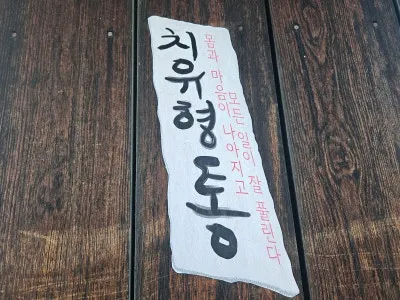 치유형통
몸과 마음이 나아지고
모든 일이 잘 풀린다